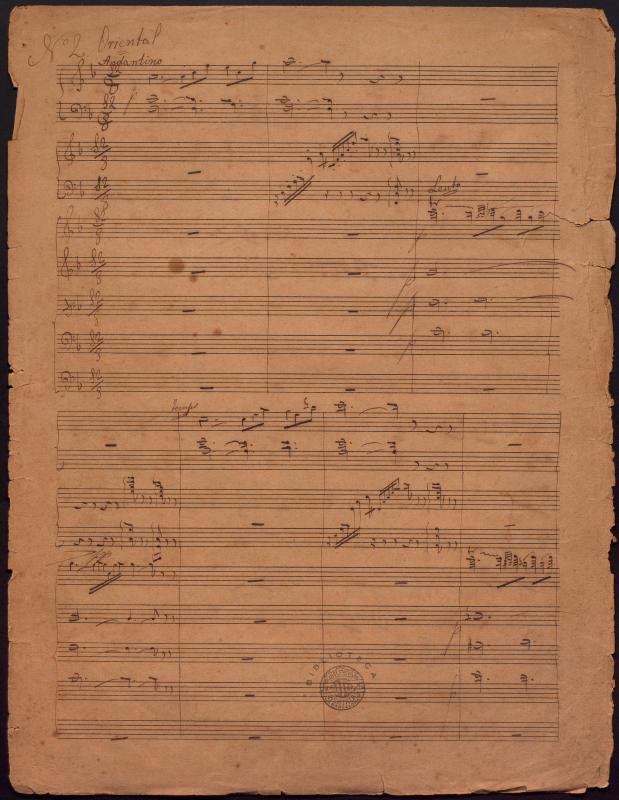 Nº 2 Oriental
Andantino
Lento
Tempo
BIBLIOTECA
1